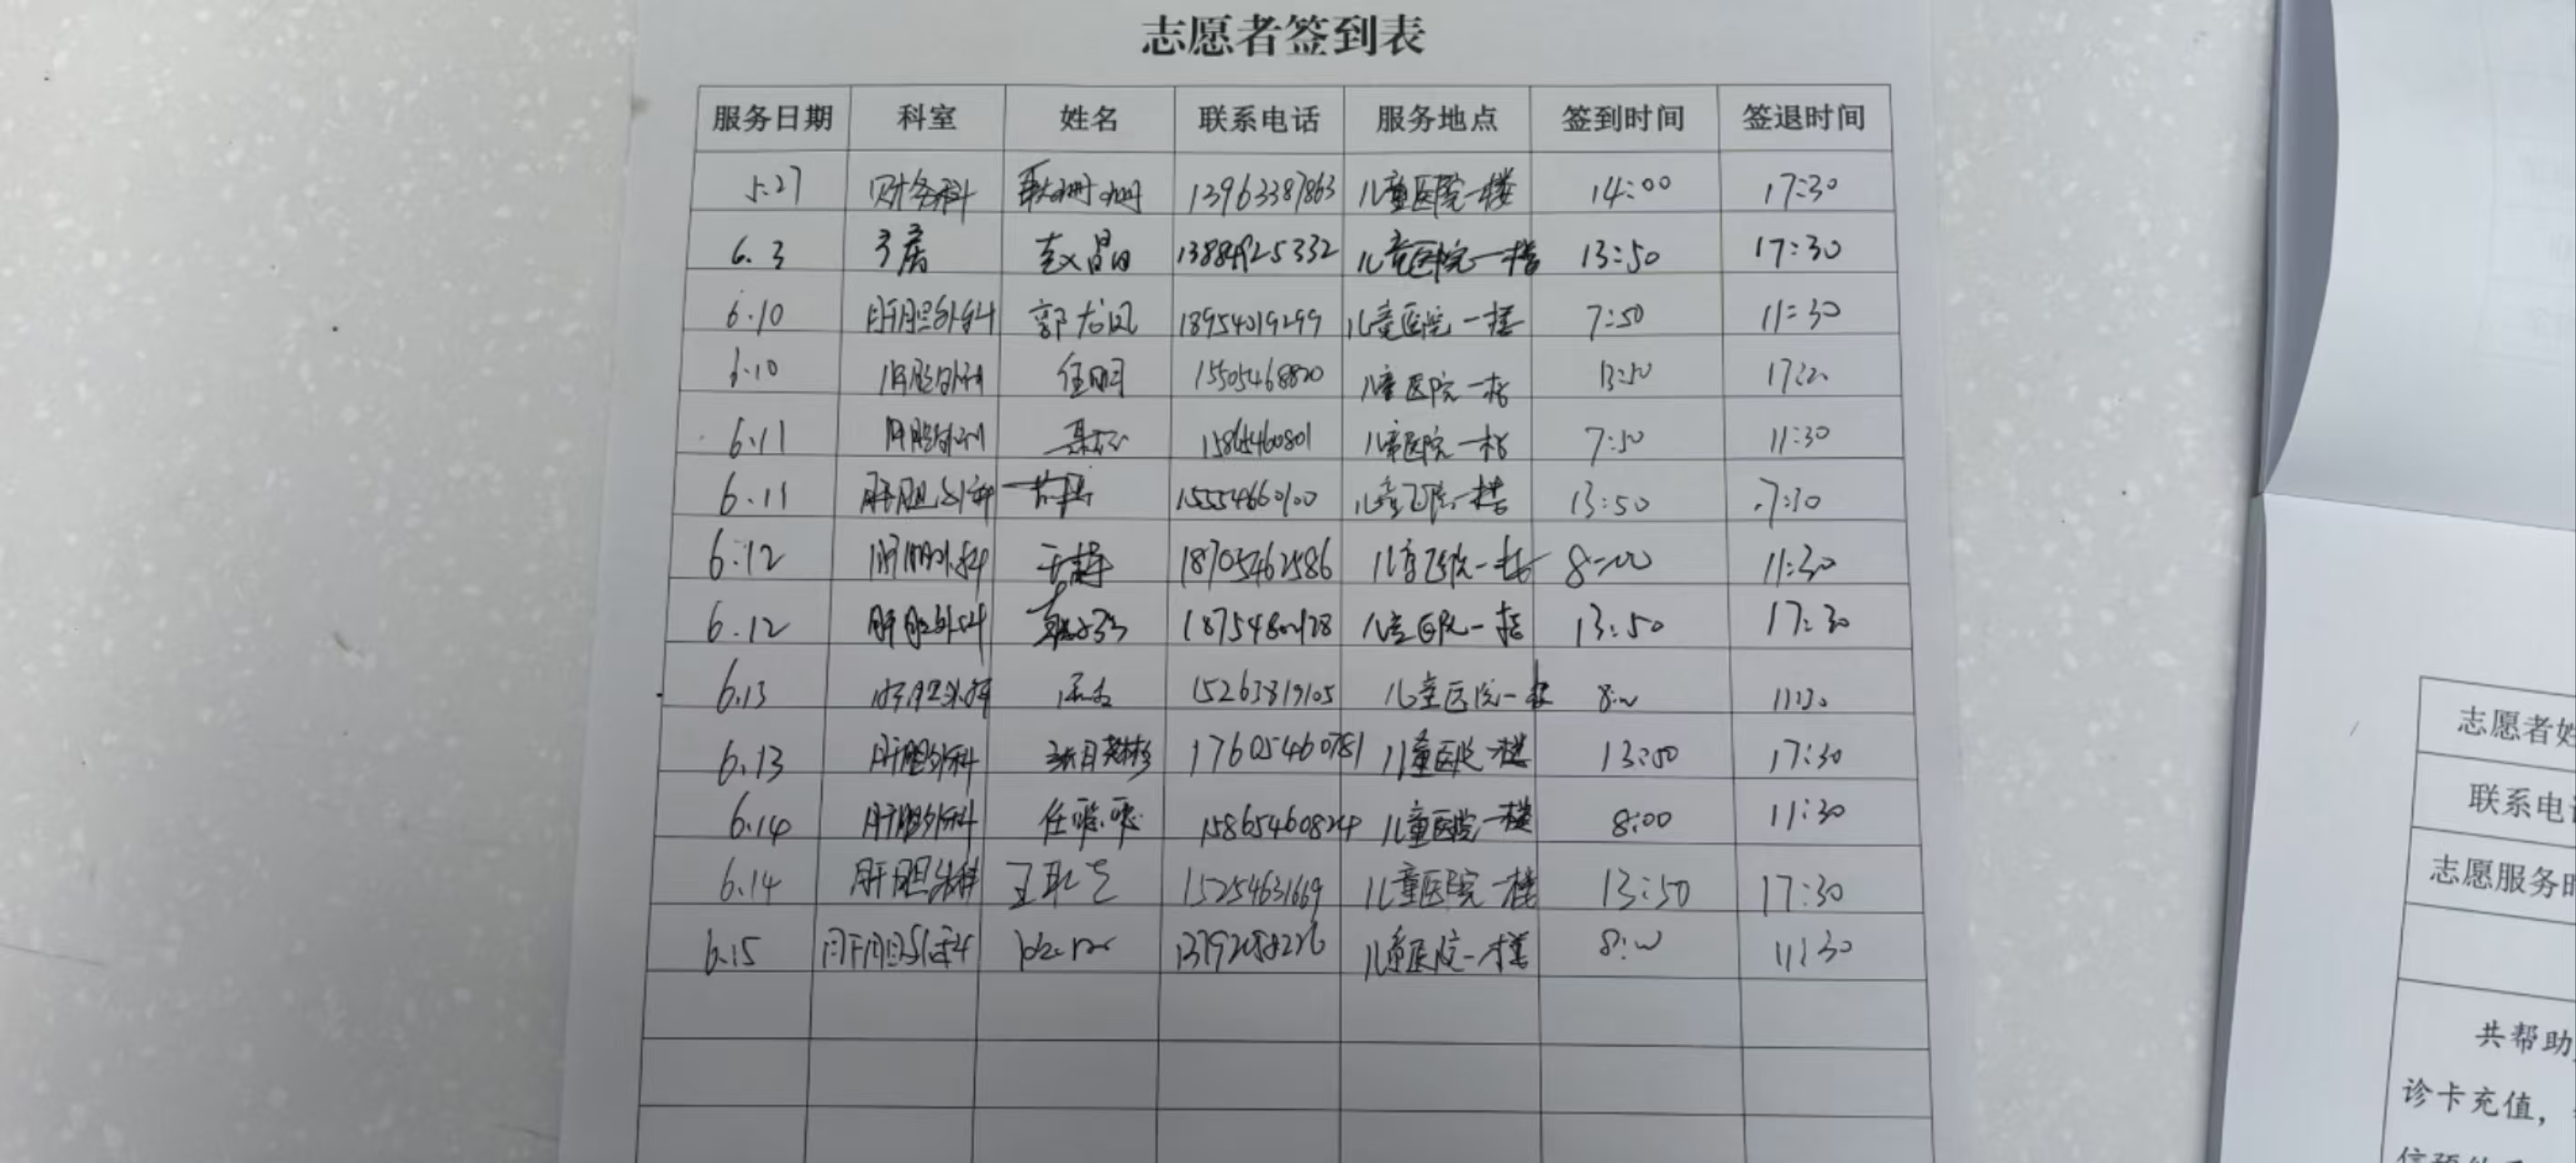 志愿者签到表
服务日期 科室 姓名 联系电话 服务地点 签到时间 签退时间
5.27 财务科 耿姗姗 13963387863 儿童医院一楼 14:00 17:30
6.3 赵晶 13884925332 儿童医院一楼 13:50 17:30
6.10 肝胆外科 郭龙凤 18954019299 儿童医院一楼 7:50 11:30
6.10 肝胆外科 任明 15505468820 儿童医院一楼 13:50
6.11 肝胆外科 15865460801 儿童医院一楼 7:50 11:30
6.11 肝胆外科 15554660100 儿童医院一楼 13:50
6.12 肝胆外科 18705462586 儿童医院一楼 8:00 11:30
6.12 肝胆外科 儿童医院一楼 13:50 17:30
6.13 肝胆外科 15263819105 儿童医院一楼 8:00 11:30
6.13 肝胆外科 17605460781 儿童医院一楼 13:50 17:30
6.14 肝胆外科 15865460824 儿童医院一楼 8:00 11:30
6.14 肝胆外科 15254631669 儿童医院一楼 13:50 17:30
6.15 肝胆外科 儿童医院一楼 8:00 11:30
志愿者姓
联系电话
志愿服务时
共帮助
诊卡充值，